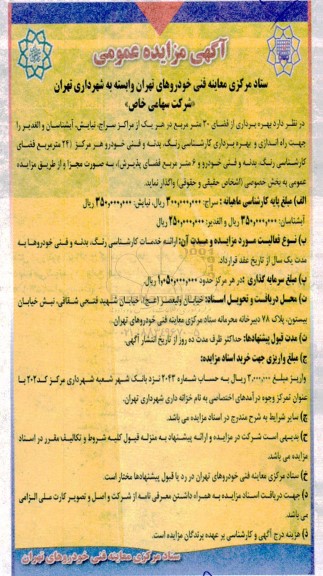 آگهی مزایده عمومی
ستاد مرکزی معاینه فنی خودروهای تهران وابسته به شهرداری تهران
«شرکت سهامی خاص»
در نظر دارد بهره برداری از فضای ۳۰ متر مربع در هر یک از مراکز سراج، نیایش، آبشناسان و الغدیر را
جهت راه اندازی و بهره برداری کارشناسی رنگ، بدنه و فنی خودرو هر مرکز (۲۴ مترمربع فضای
کارشناسی رنگ، بدنه و فنی خودرو و ۶ متر مربع فضای پذیرش)، به صورت مجزا و از طریق مزایده
عمومی به بخش خصوصی (اشخاص حقیقی و حقوقی) واگذار نماید.
الف) مبلغ پایه کارشناسی ماهیانه: سراج: ۳۰۰,۰۰۰,۰۰۰ ریال، نیایش: ۳۵۰,۰۰۰,۰۰۰ ریال
آبشناسان: ۳۵۰,۰۰۰,۰۰۰ ریال و الغدیر: ۲۵۰,۰۰۰,۰۰۰ ریال
ب) نوع فعالیت مورد مزایده و مدت آن: ارائه خدمات کارشناسی رنگ، بدنه و فنی خودروها به
مدت یک سال از تاریخ عقد قرارداد.
پ) مبلغ سرمایه گذاری: در هر مرکز حدود ۱,۰۵۰,۰۰۰,۰۰۰ ریال
ت) محل دریافت و تحویل اسناد: خیابان ولیعصر (عج)، خیابان شهید فتحی شقاقی، نبش خیابان
بیستون، پلاک ۷۸ دبیرخانه محرمانه ستاد مرکزی معاینه فنی خودروهای تهران.
ث) مدت قبول پیشنهادها: حداکثر ظرف مدت ده روز از تاریخ انتشار آگهی.
ج) مبلغ واریزی جهت خرید اسناد مزایده:
واریز مبلغ ۳,۰۰۰,۰۰۰ ریال به حساب شماره ۲۰۴۳ نزد بانک شهر شعبه شهرداری مرکز کد۲۰۲ با
عنوان تمرکز وجوه درآمدهای اختصاصی به نام خزانه داری شهرداری تهران.
چ) سایر شرایط به شرح مندرج در اسناد مزایده می باشد.
ح) بدیهی است شرکت در مزایده و ارائه پیشنهاد به منزله قبول کلیه شروط و تکالیف مقرر در اسناد
مزایده می باشد.
خ) ستاد مرکزی معاینه فنی خودروهای تهران در رد یا قبول پیشنهادها مختار است.
د) جهت دریافت اسناد مزایده به همراه داشتن معرفی نامه از شرکت و اصل و تصویر کارت ملی الزامی
می باشد.
ذ) هزینه درج آگهی و کارشناسی بر عهده برندگان مزایده است.
ستاد مرکزی معاینه فنی خودروهای تهران